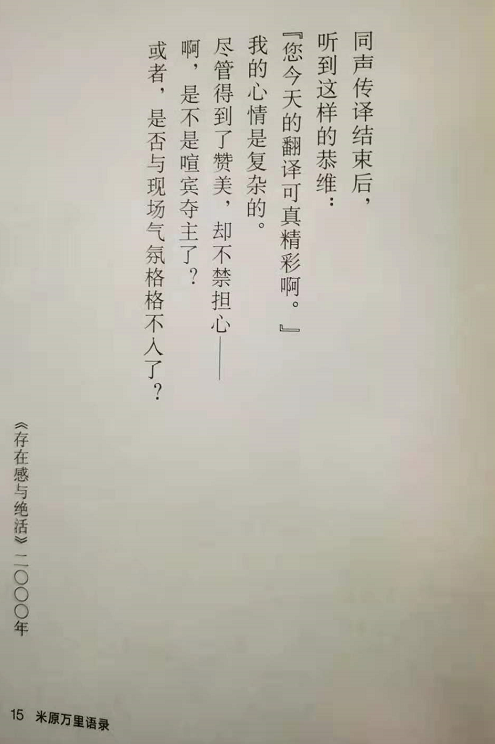 同声传译结束后，
听到这样的恭维：
『您今天的翻译可真精彩啊。』
我的心情是复杂的。
尽管得到了赞美，却不禁担心——
啊，是不是喧宾夺主了？
或者，是否与现场气氛格格不入了？
《存在感与绝活》二〇〇〇年
15 米原万里语录